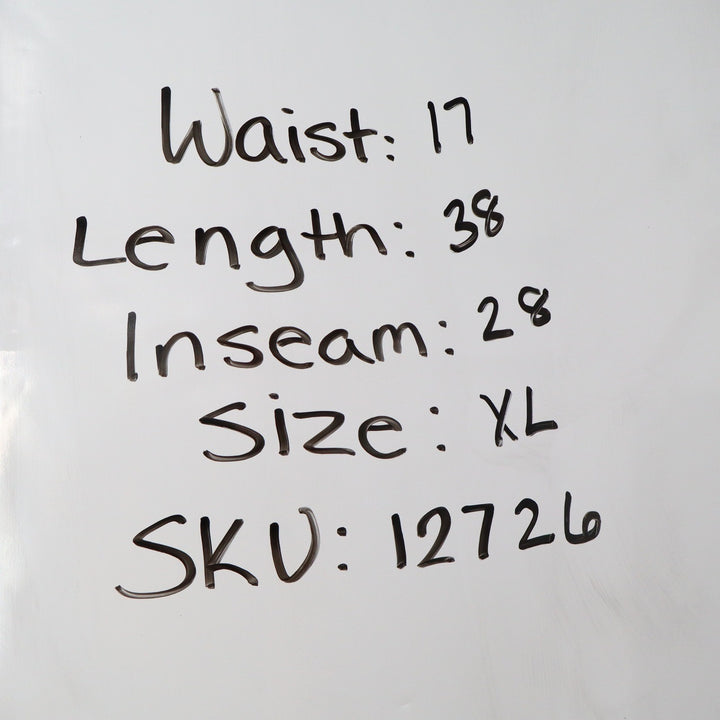 Waist: 17
Length: 38
Inseam: 28
Size: XL
SKU: 12726